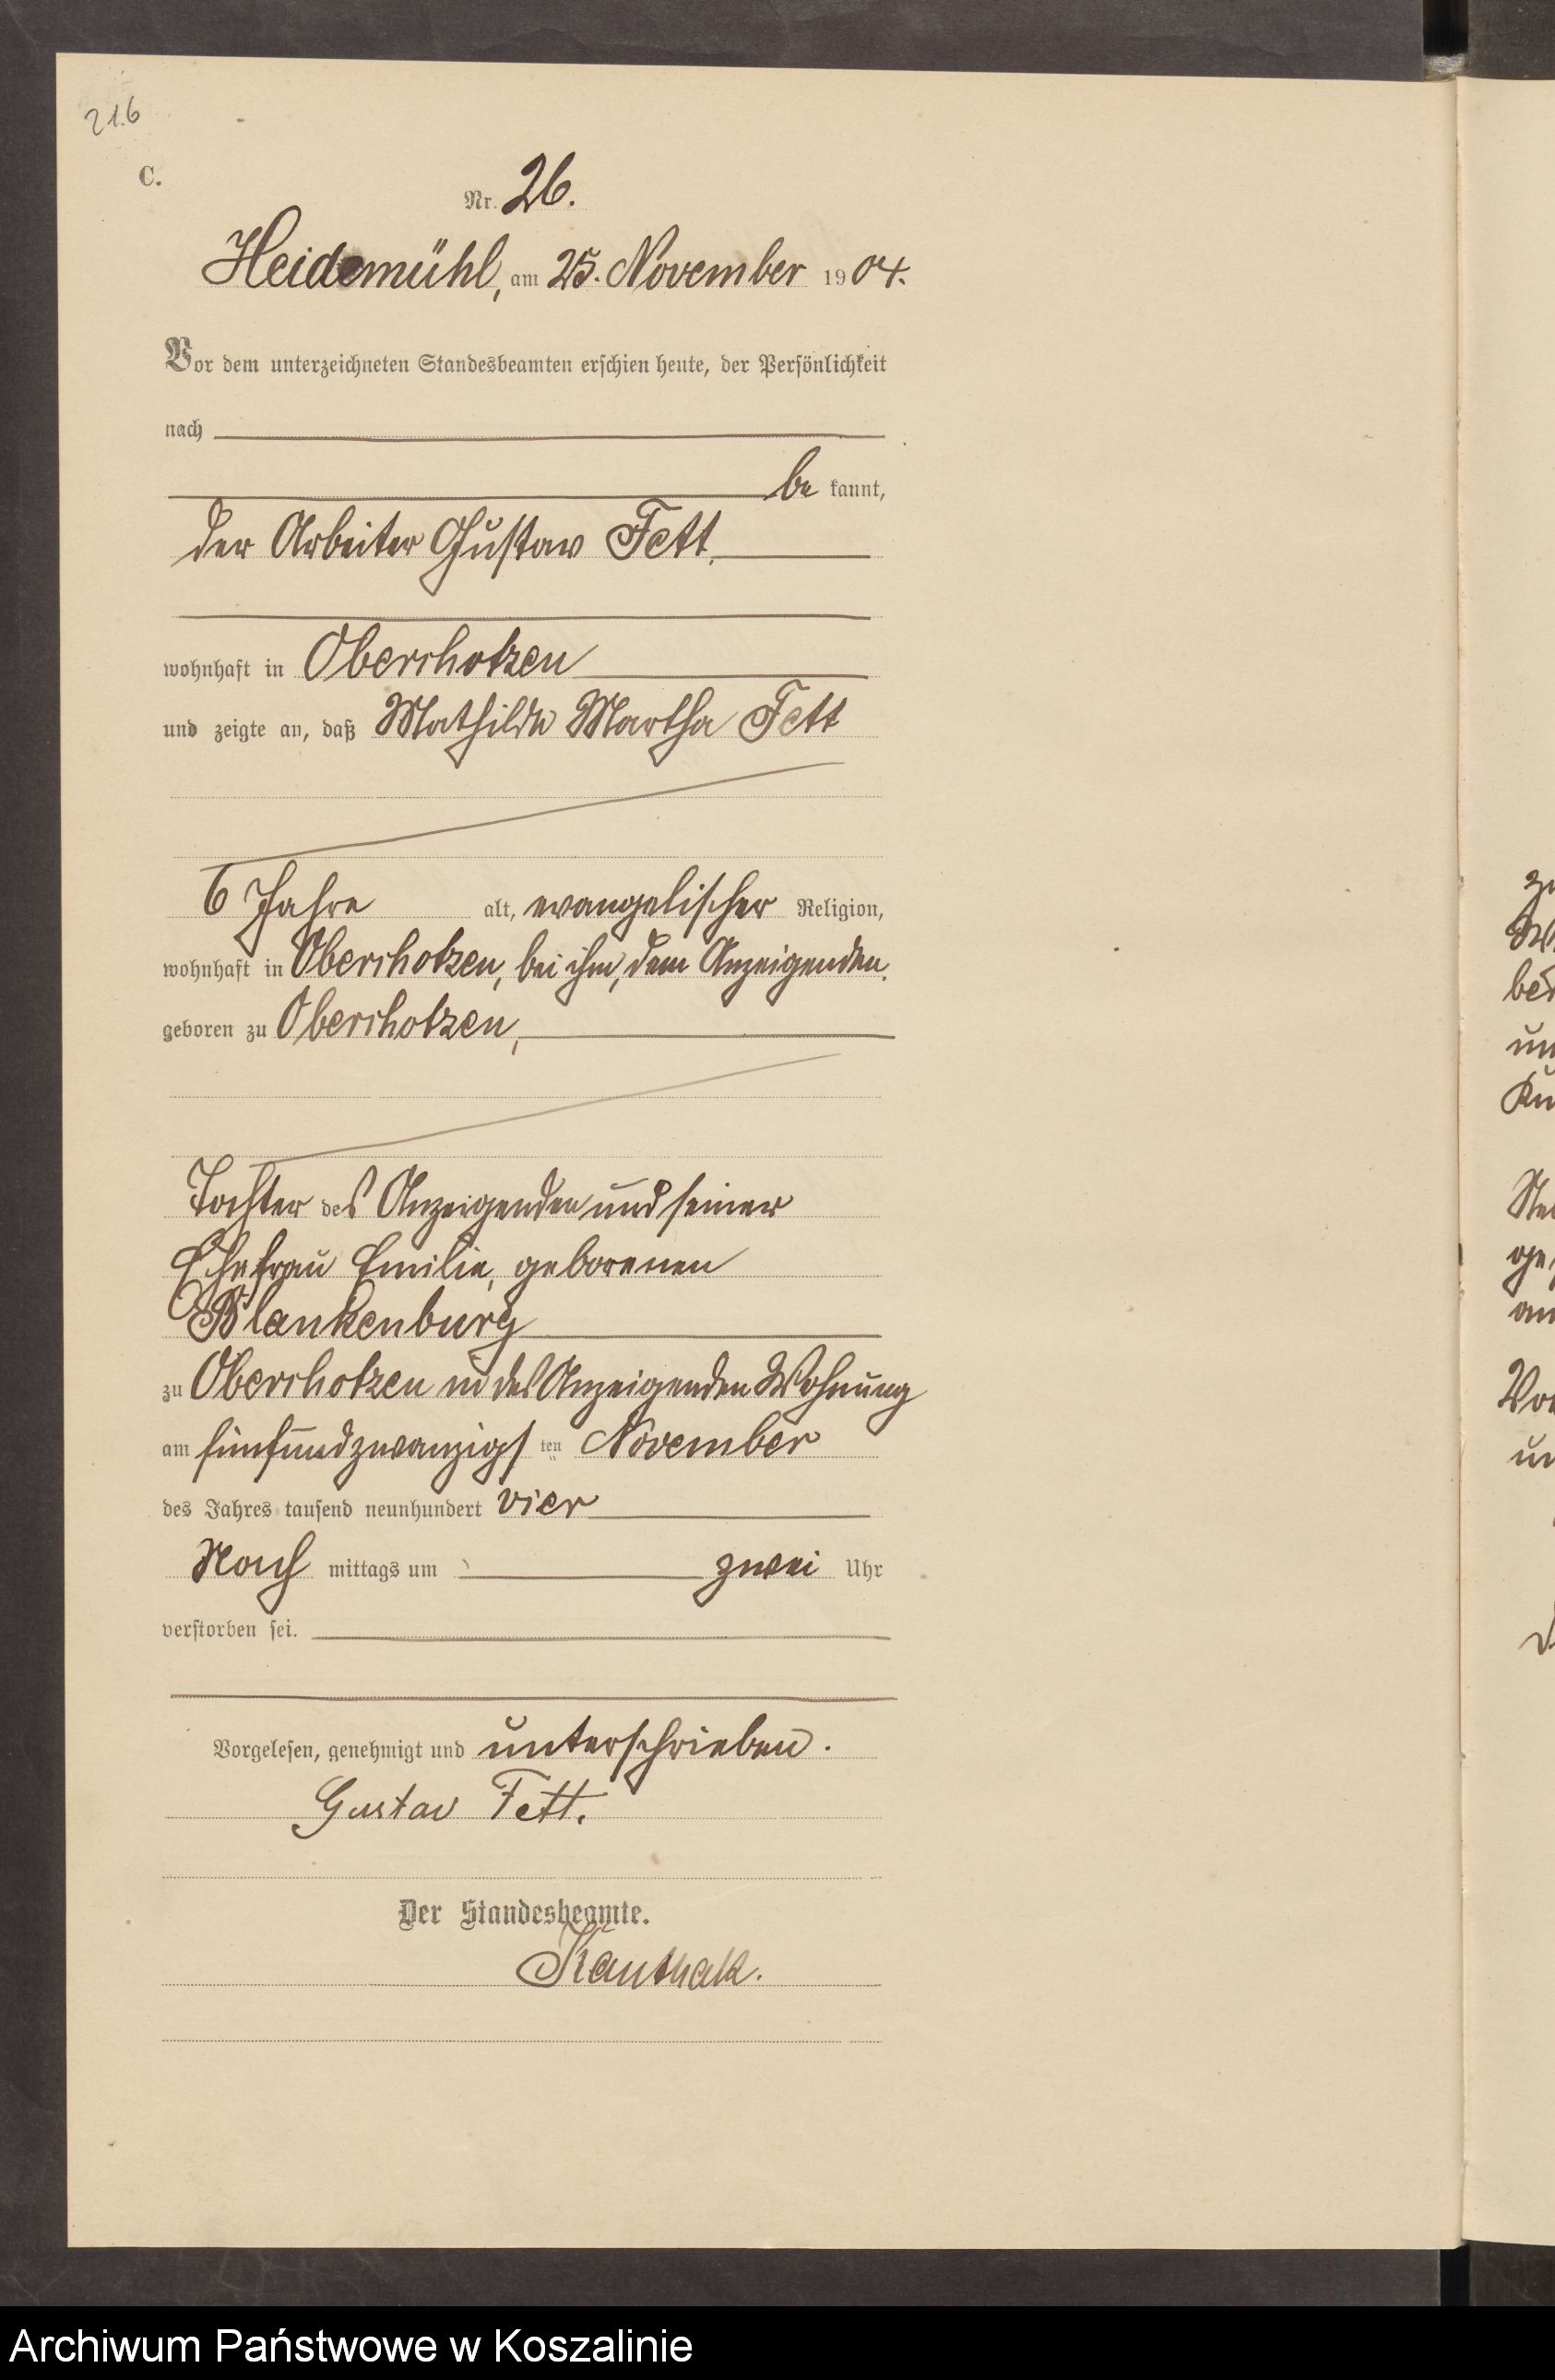 216
C.
Nr. 26.
Heidemühl, am 25. November 1904.
Vor dem unterzeichneten Standesbeamten erschien heute, der Persönlichkeit
nach
be kannt,
der Arbeiter Gustav Fett,
wohnhaft in Oberschotzen
und zeigte an, daß Mathilde Martha Fett
6 Jahre alt, evangelischer Religion,
wohnhaft in Oberschotzen, bei ihm, dem Anzeigenden,
geboren zu Oberschotzen,
Tochter des Anzeigenden und seiner
Ehefrau Emilie, geborenen
Blankenburg
zu Oberschotzen in des Anzeigenden Wohnung
am fünfundzwanzigsten November
des Jahres tausend neunhundert vier
Nach mittags um zwei Uhr
verstorben sei.
Vorgelesen, genehmigt und unterschrieben.
Gustav Fett.
Der Standesbeamte.
Archiwum Państwowe w Koszalinie